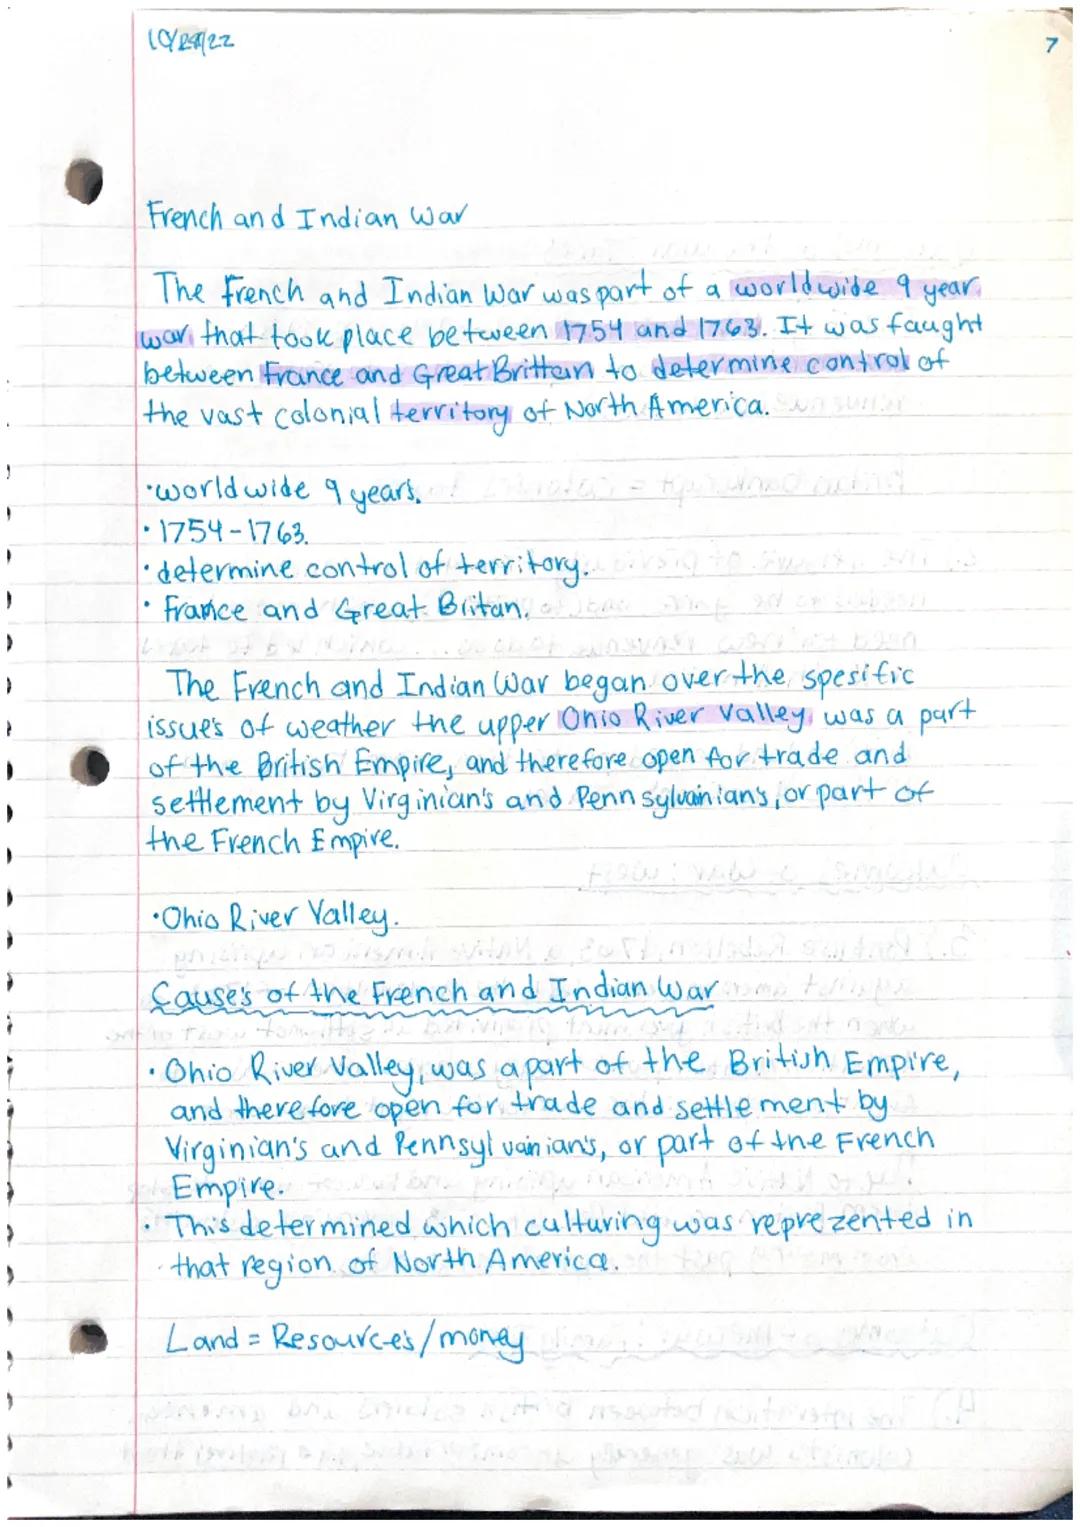 7
French and Indian War
The French and Indian War was part of a worldwide 9 year
war that took place between 1754 and 1763. It was faught
between France and Great Brittan to determine control of
the vast colonial territory of North America.
•worldwide 9 years.
•1754-1763.
•determine control of territory.
•France and Great Britan.
The French and Indian War began over the spesific
issue's of weather the upper Ohio River Valley was a part
of the British Empire, and therefore open for trade and
settlement by Virginian's and Pennsylvanians, or part of
the French Empire.
•Ohio River Valley.
Cause's of the French and Indian War
•Ohio River Valley, was a part of the British Empire,
and therefore open for trade and settlement by
Virginian's and Pennsylvanian's, or part of the French
Empire.
•This determined which culturing was reprezented in
that region of North America.
Land = Resource's/money